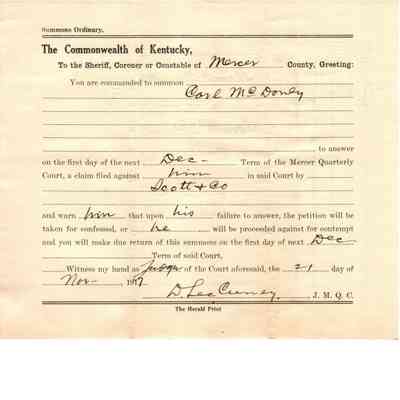 Summons Ordinary.
The Commonwealth of Kentucky,
To the Sheriff, Coroner or Constable of Mercer County, Greeting:
You are commanded to summon
Carl McDoney
to answer
on the first day of the next Dec- Term of the Mercer Quarterly
Court, a claim filed against him in said Court by
Scott & Co
and warn him that upon his failure to answer, the petition will be
taken for confessed, or he will be proceeded against for contempt
and you will make due return of this summons on the first day of next Dec
Term of said Court.
Witness my hand as Judge of the Court aforesaid, the 21 day of
Nov- 1917
D. Lee J. M. Q. C.
The Herald Print